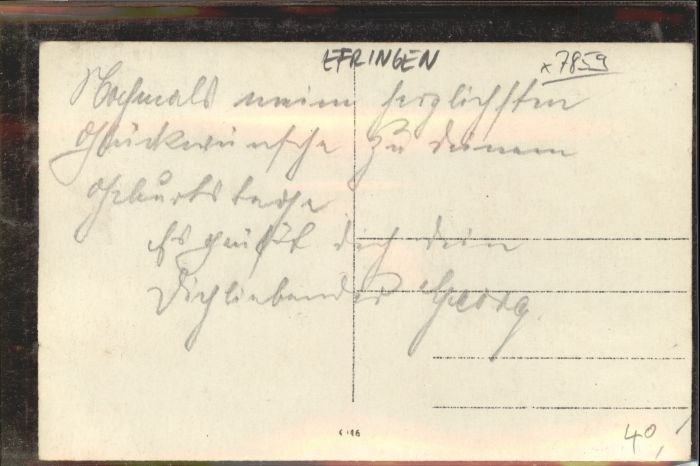 EFRINGEN
x7859
Nochmals meine herzlichsten
Glückwünsche zu deinem
Geburtstage
Es grüßt dich dein
Dichliebender Georg.
40,